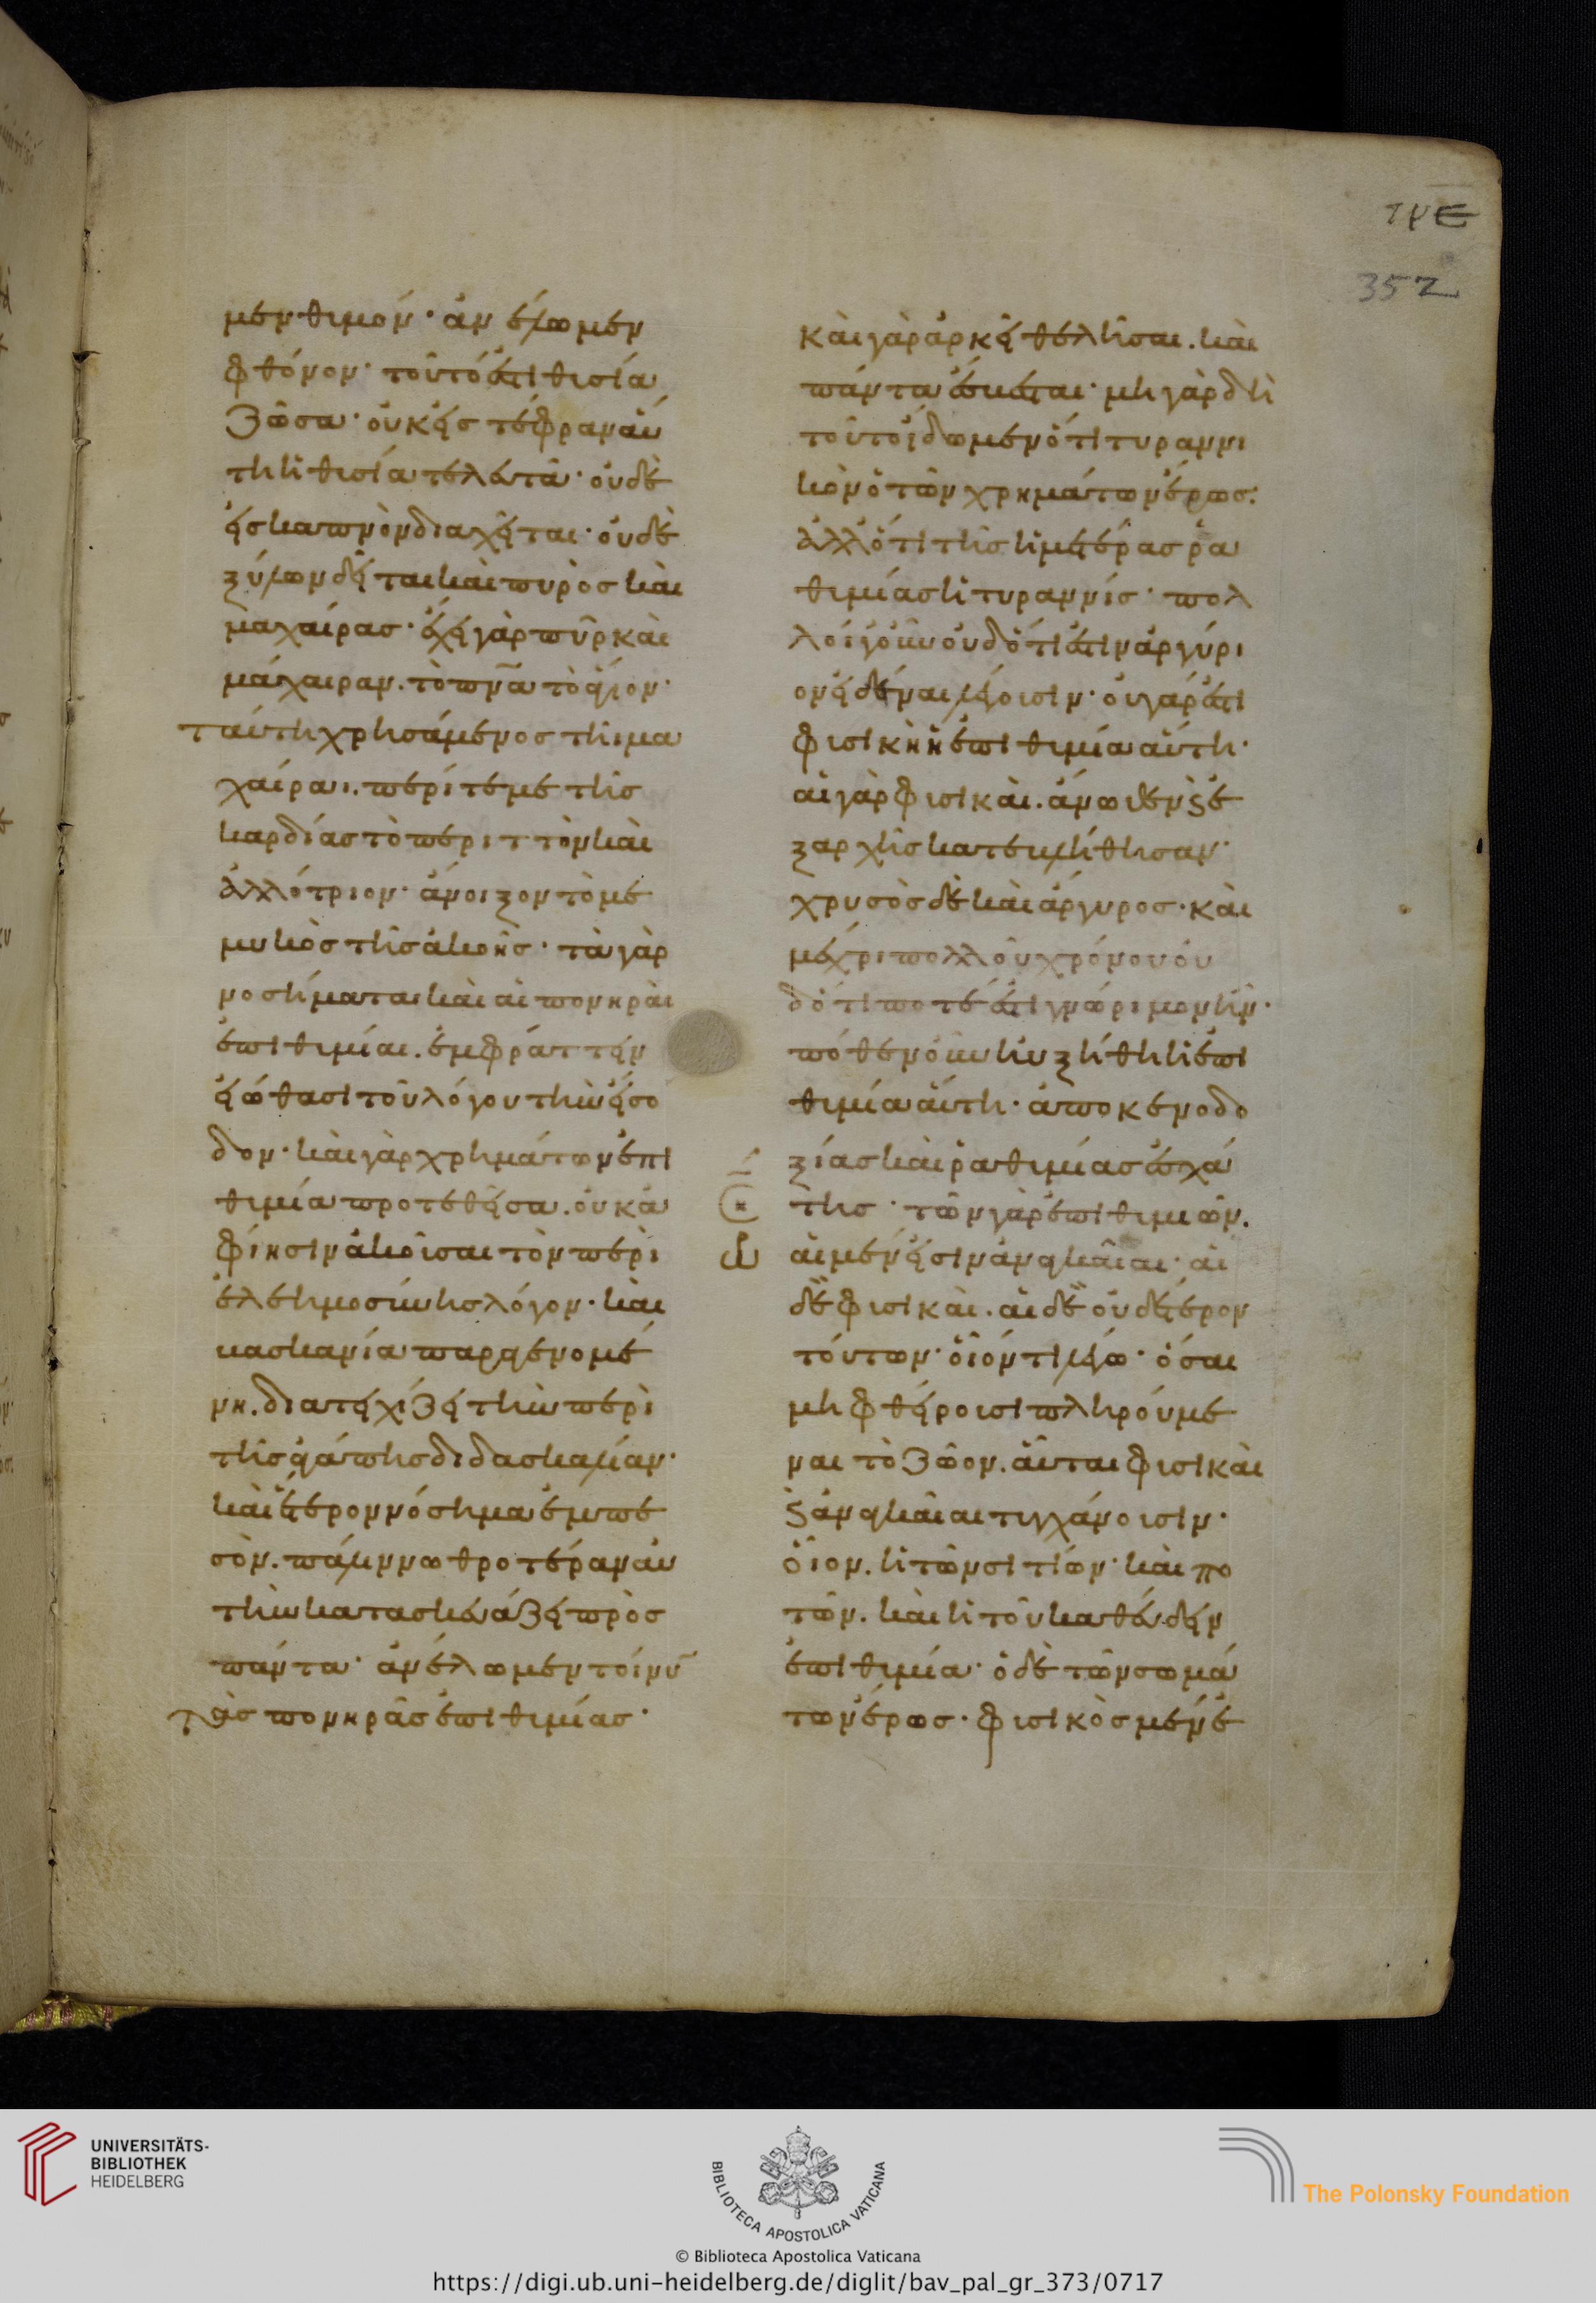 τνε
352
μεν θυμόν· ἀνέλωμεν
φθόνον· τοῦτό ἐστι θυσία
ζῶσα· οὐκ εἰς τέφραν αὕ
τη ἡ θυσία τελευτᾶ· οὐδὲ
εἰς καπνὸν διαχεῖται· οὐδὲ
ξύλων δεῖται καὶ πυρὸς καὶ
μαχαίρας· ἔχει γὰρ πῦρ καὶ
μάχαιραν. τὸ πνᾶ τὸ ἅγιον·
ταύτη χρησάμενος τῆι μα
χαίραι. περίτεμε τῆς
καρδίας τὸ περιττὸν καὶ
ἀλλότριον· ἄνοιξον τὸ με
μυκὸς τῆς ἀκοῆς· τὰ γὰρ
νοσήματα καὶ αἱ πονηραὶ
ἐπιθυμίαι. ἐμφράττειν
εἰώθασι τοῦ λόγου τὴν εἴσο
δον· καὶ γὰρ χρημάτων ἐπι
θυμία προτεθεῖσα. οὐκ ἀ
φίησιν ἀκοῦσαι τὸν περὶ
ἐλεημοσύνης λόγον· καὶ
βασκανία παραγενομέ
νη. διατειχίζει τὴν περὶ
τῆς ἀγάπης διδασκαλίαν·
καὶ ἕτερον νόσημα ἐμπε
σὸν. πάλιν νωθροτέραν αὐ
τὴν κατασκευάζει πρὸς
πάντα· ἀνέλωμεν τοίνῦ
τὰς πονηρὰς ἐπιθυμίας·
καὶ γὰρ ἀρκεῖ θελῆσαι. καὶ
πάντα ἔσβεσται· μὴ γὰρ δὴ
τοῦτο ἴδωμεν ὅτι τυραννι
κὸν ὁ τῶν χρημάτων ἔρως:
ἀλλ' ὅτι τῆς ἡμετέρας ρα
θυμίας ἡ τυραννίς· πολ
λοὶ γοῦν οὐδ' ὅτι ἐστὶν ἀργύρι
ον εἰδέναι λέγουσιν· οὐ γάρ ἐστι
φυσικὴ ἡ ἐπιθυμία αὕτη·
αἱ γὰρ φυσικαὶ. ἄνωθεν καὶ ἐ
ξαρχῆς κατεβλήθησαν·
χρυσὸς δὲ καὶ ἄργυρος. καὶ
μέχρι πολλοῦ χρόνου οὐ
δ' ὅτι ποτέ ἐστι γνώριμον ἦν·
πόθεν οὖν ηὐξήθη ἡ ἐπι
θυμία αὕτη· ἀπὸ κενοδο
ξίας καὶ ραθυμίας ἐσχά
της· τῶν γὰρ ἐπιθυμιῶν.
αἱ μέν εἰσιν ἀναγκαῖαι· αἱ
δὲ φυσικαὶ. αἱ δὲ οὐδέτερον
τούτων· οἷόν τι λέγω· ὅσαι
μὴ φθείρουσι πληρούμε
ναι τὸ ζῶον. αὗται φυσικαὶ
καὶ ἀναγκαῖαι τυγχάνουσιν·
οἷον. ἡ τῶν σιτίων· καὶ πο
τῶν. καὶ ἡ τοῦ καθεύδειν
ἐπιθυμία· ὁ δὲ τῶν σωμά
των ἔρως. φυσικὸς μέν ἐ
UNIVERSITÄTS-
BIBLIOTHEK
HEIDELBERG
BIBLIOTECA APOSTOLICA VATICANA
The Polonsky Foundation
© Biblioteca Apostolica Vaticana
https://digi.ub.uni-heidelberg.de/diglit/bav_pal_gr_373/0717